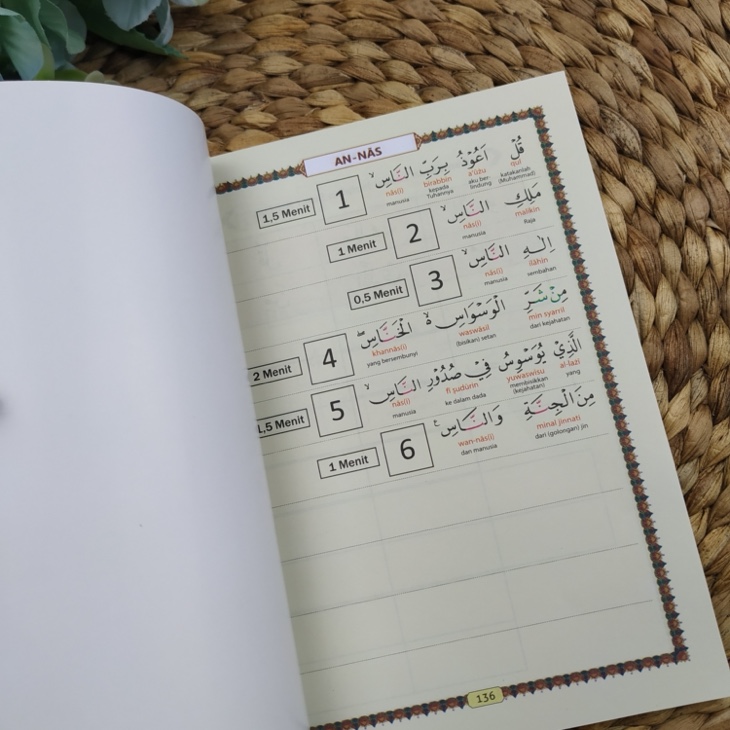 AN-NĀS
قُلْ اَعُوْذُ بِرَبِّ النَّاسِۙ 1 1,5 Menit
qul a'ūżu birabbin nās(i)
katakanlah (Muhammad) aku berlindung kepada Tuhannya manusia
مَلِكِ النَّاسِۙ 2 1 Menit
malikin nās(i)
Raja manusia
اِلٰهِ النَّاسِۙ 3 0,5 Menit
ilāhin nās(i)
sembahan manusia
مِنْ شَرِّ الْوَسْوَاسِ ەۙ الْخَنَّاسِۖ 4 2 Menit
min syarril waswāsil khannās(i)
dari kejahatan (bisikan) setan yang bersembunyi
الَّذِيْ يُوَسْوِسُ فِيْ صُدُوْرِ النَّاسِۙ 5 1,5 Menit
al-lażī yuwaswisu fī ṣudūrin nās(i)
yang membisikkan (kejahatan) ke dalam dada manusia
مِنَ الْجِنَّةِ وَالنَّاسِ ࣖ 6 1 Menit
minal jinnati wan-nās(i)
dari (golongan) jin dan manusia
136